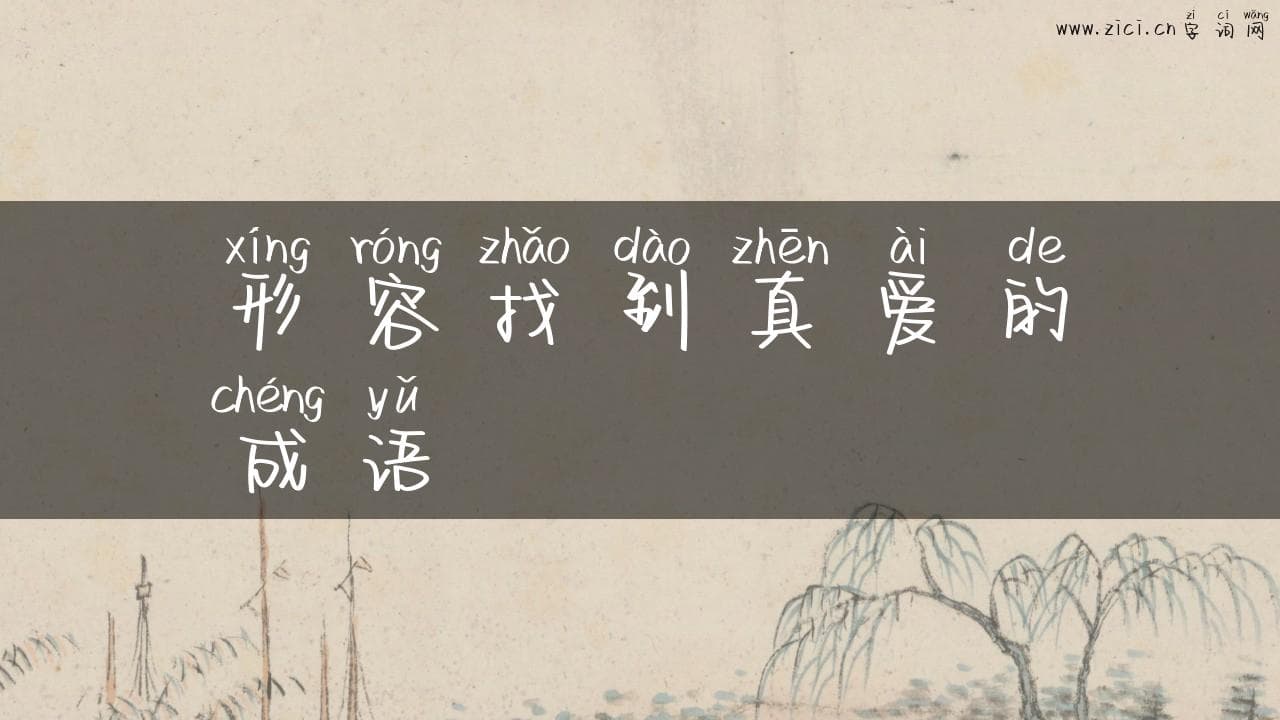 zì cí wǎng
www.zici.cn 字词网
xíng róng zhǎo dào zhēn ài de
形容找到真爱的
chéng yǔ
成语